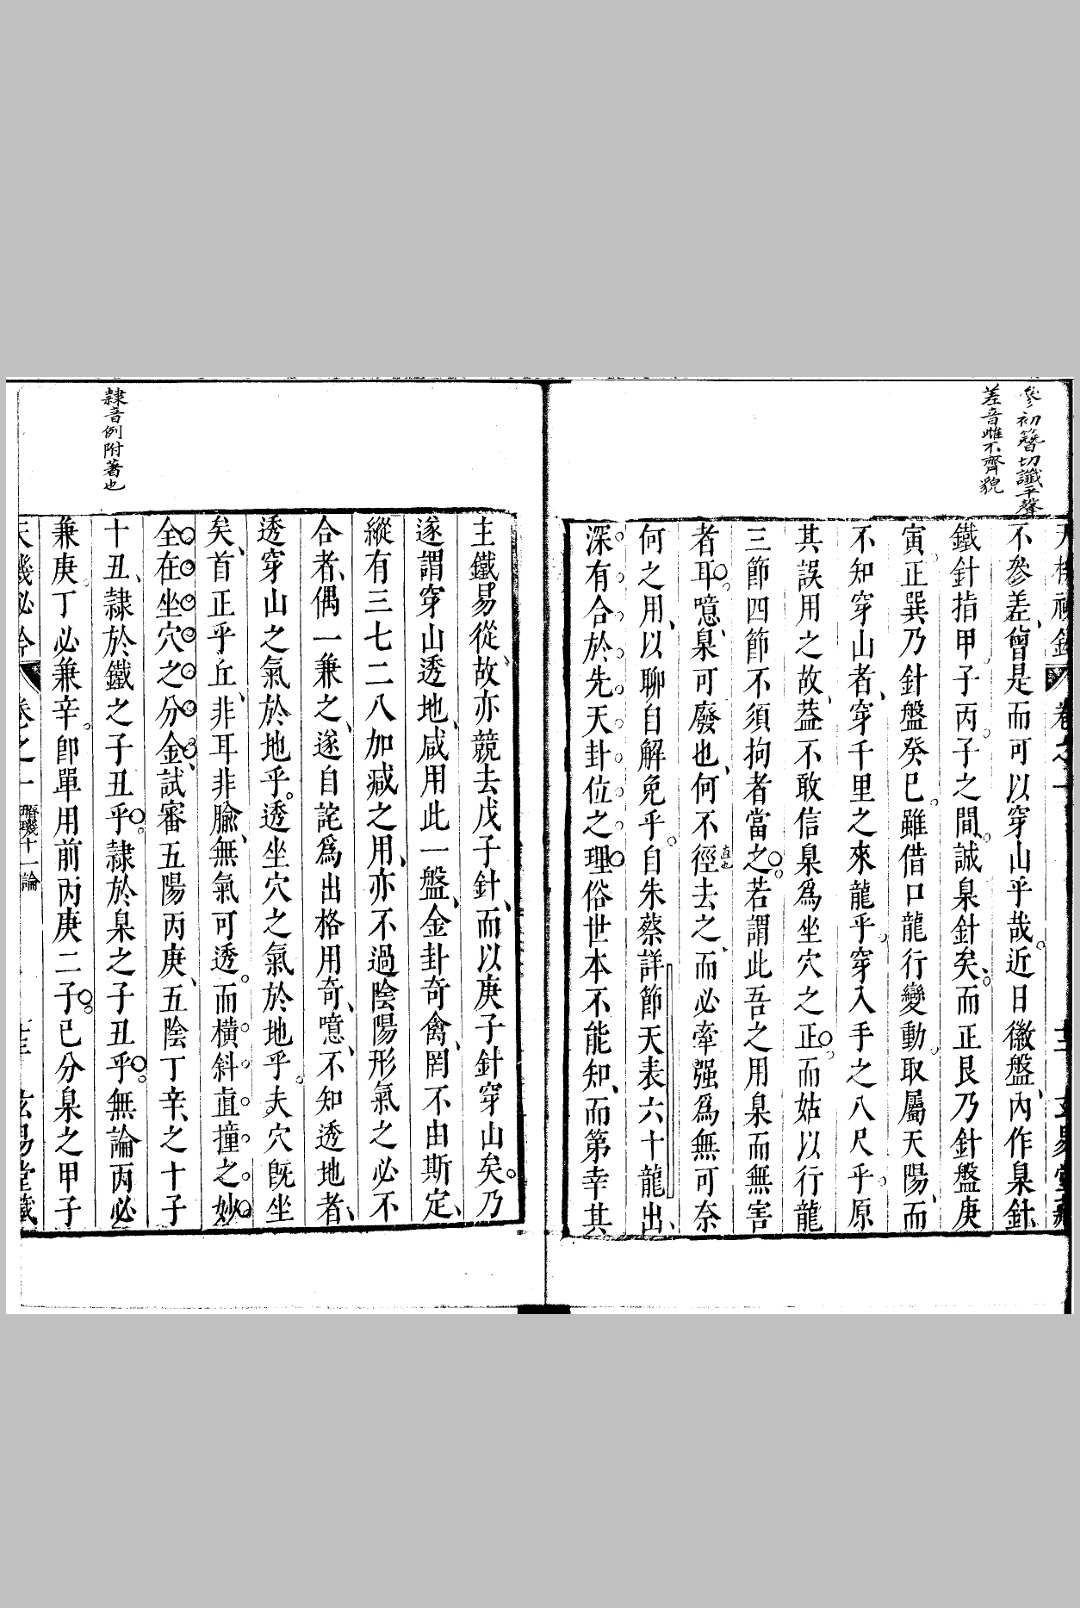 參初簪切讖平聲
差音雌不齊貌
不參差、曾是而可以穿山乎哉。近日徽盤、內作臬針、
鐵針指甲子丙子之間。誠臬針矣、而正艮乃針盤庚
寅正巽乃針盤癸巳。雖借口龍行變動、取屬天陽、而
不知穿山者、穿千里之來龍乎、穿入手之八尺乎。原
其誤用之故、葢不敢信臬為坐穴之正。而姑以行龍
三節四節不須拘者當之。若謂此吾之用臬而無害
者耳。噫、臬可廢也、何不徑直也去之、而必牽强為無可奈
何之用、以聊自解免乎。自朱蔡詳節天表六十龍出、
深有合於先天卦位之理。俗世本不能知、而第幸其
隸音例附著也
主鐵易從、故亦競去戊子針、而以庚子針穿山矣。乃
遂謂穿山透地、咸用此一盤、金卦奇禽、罔不由斯定、
縱有三七二八加減之用、亦不過陰陽形氣之必不
合者、偶一兼之、遂自詫爲出格用奇、噫、不知透地者、
透穿山之氣於地乎。透坐穴之氣於地乎。夫穴旣坐
矣、首正乎丘、非耳非腧、無氣可透。而橫斜直撞之妙
全在坐穴之分金、試審五陽丙庚、五陰丁辛、之十子
十丑、隸於鐵之子丑乎。隸於臬之子丑乎。無論丙必
兼庚。丁必兼辛。卽單用前丙庚二子。已分臬之甲子